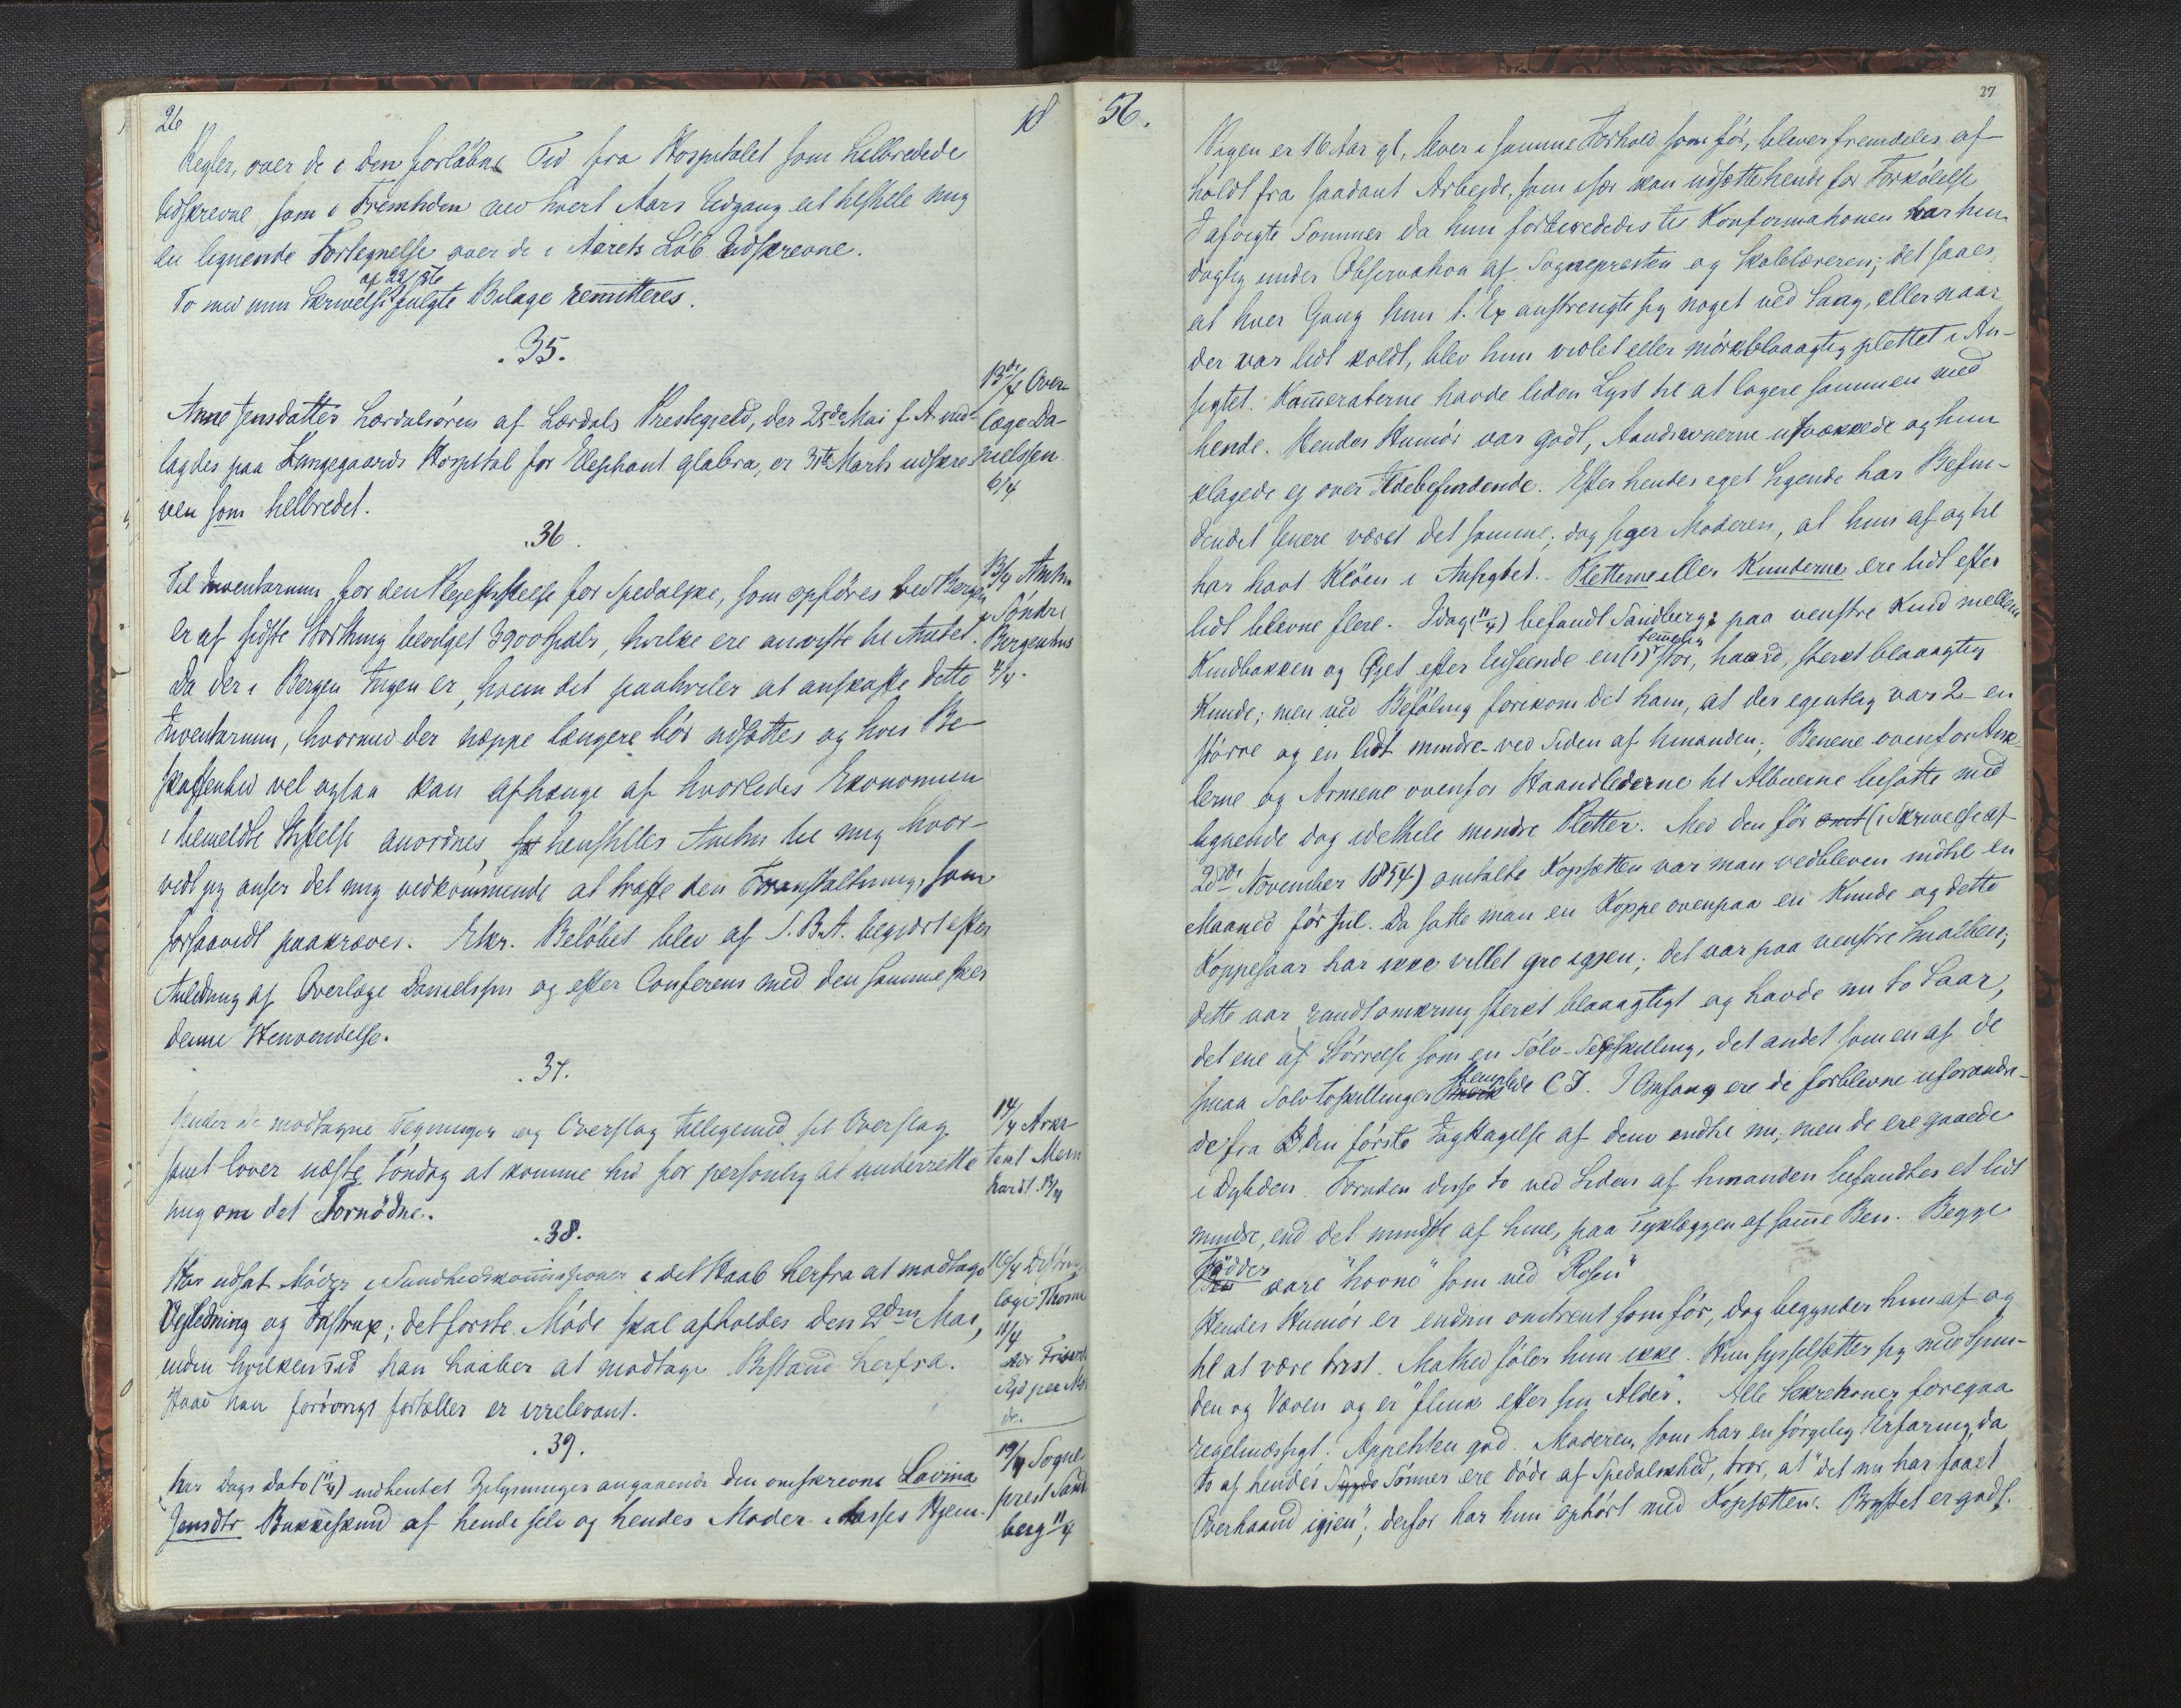 26
18
Regler, over de i den forløbne Tid fra Hospitalet som helbredede
Udskrevne som i Fremtiden ved hvert Aars Udgang at tilstille mig
en lignende Fortegnelse over de i Aarets Løb Udskrevne.
af 22/3 56
To med min Skrivelse fulgte Bilage remitteres.
.35.
Anne Jensdatter Lærdalsøren af Lærdals Prestegjeld, der 25de Mai f. A. ind-
lagdes paa Lungegaards Hospital for Elephant. glabra, er 31te Marts udskre-
ven som helbredet.
13de/4 Over-
læge Da-
nielssen
6/4
.36.
Til Inventarium for den Plejestiftelse for Spedalske, som opføres ved Bergen
er af sidste Storthing bevilget 3900 Spdlr, hvilke ere anviste til Amtet.
Da der i Bergen Ingen er, hvem det paahviler at anskaffe dette
Inventarium, hvormed der neppe længere bør udsættes og hvis Be-
skaffenhed vel ogsaa kan afhænge af hvorledes Ekonomien
i bemeldte Stiftelse anordnes, henstiller Amtm til mig hvor-
vidt jeg anser det mig vedkommende at træffe den Foranstaltning, som
forsaavidt paakræves. Beløbet blev af S. B. A. begjært efter
Anledning af Overlæge Danielssen og efter Conferens med den samme sker
denne Henvendelse.
13/4 Amtm
i Søndre
Bergenhus
11/4.
.37.
Sender de modtagne Tegninger og Overslag tilligemed sit Overslag
samt lover næste Søndag at komme hid for personlig at underrette
mig om det Fornødne.
14/4 Arki-
tekt Mein-
hardt 13/4
.38.
Har udsat Møder i Sundhedskommissionen i det Haab herfra at modtage
Vejledning og Instrux; det første Møde skal afholdes den 2den Mai,
inden hvilken Tid han haaber at modtage Bistand herfra.
Hvad han forøvrigt fortæller er irrelevant.
16/4 Distrikts-
læge Thome
11/4
.39.
har Dags Dato (11/4) indhentet Oplysninger angaaende den omskrevne Lavina
Jensdtr Bukkeskind af hende selv og hendes Moder i disses Hjem.
19/4 Sogne-
prest Sand-
berg 11/4
56.
27
Pigen er 16 Aar gl, lever i samme Forhold som før, bliver fremdeles af-
holdt fra saadant Arbejde, som især kan udsætte hende for Forkølelse
I afvigte Sommer da hun forberededes til Konfirmationen var hun
daglig under Observation af Sognepresten og Skolelæreren; det saaes,
at hver Gang hun t. Ex anstrengte sig noget ved Sang, eller naar
der var lidt koldt, blev hun violet eller mørkblaaagtig plettet i An-
sigtet. Kammeraterne havde liden Lyst til at logere sammen med
hende. Hendes Humør var godt, Aandsevnerne usvækkede og hun
klagede ej over Ildebefindende. Efter hendes eget Sigende har Befin-
dendet senere været det samme; dog siger Moderen, at hun af og til
har havt Kløen i Ansigtet. Pletterne eller Knuderne ere lidt efter
lidt blevne flere. Idag (11/4) befandt Sandberg: paa venstre Kind mellem
temmelig
Kindbakken og Øjet efter Udseende en (1) stor, haard, sterkt blaaagtig
Knude; men ved Beføling forekom det ham, at der egentlig var 2 - en
større og en lidt mindre - ved Siden af hinanden; Benene ovenfor Ank-
lerne og Armene ovenfor Haandledene til Albuerne besatte med
lignende dog idethele mindre Pletter. Med den før omt (i Skrivelse af
2den November 1854) omtalte Kopsætten var man vedbleven indtil en
Maaned før Jul. Da satte man en Koppe ovenpaa en Knude og dette
Koppesaar har ikke villet gro igjen; det var paa venstre Smalben;
dette var rundtomkring sterkt blaaagtigt og havde nu to Saar,
det ene af Størrelse som en Sølv-Sexskilling, det andet som en af de
stemplede
smaa Sølv toskillinger C J. I Omfang ere de forblevne uforandre-
de fra den første Iagttagelse af dem indtil nu, men de ere gaaede
i Dybden. Foruden disse to ved Siden af hinanden befandtes et lidt
mindre, end det mindste af hine, paa Tyklæggen af samme Ben. Begge
Fødder
vare "hovne" som ved "Rosen"
Hendes Humør er endnu omtrent som før, dog begynder hun af og
til at være trist. Mathed føler hun ikke. Hun sysselsætter sig med Spin-
den og Væven og er "flink efter sin Alder". Alle Sekretioner foregaa
regelmæssigt. Appetiten god. Moderen, som har en sørgelig Erfaring, da
to af hendes Sønner ere døde af Spedalskhed, tror, at "det nu har faaet
Overhaand igjen"; derfor har hun ophørt med Kopsætten. Brystet er godt.